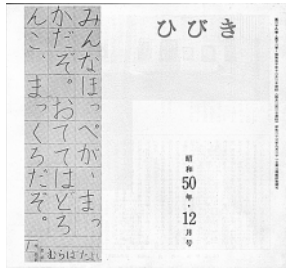 ひびき
昭和50年・12月号
みんなほっぺが、まっ
かだぞ。おてては どろ
んこ、まっくろだぞ。